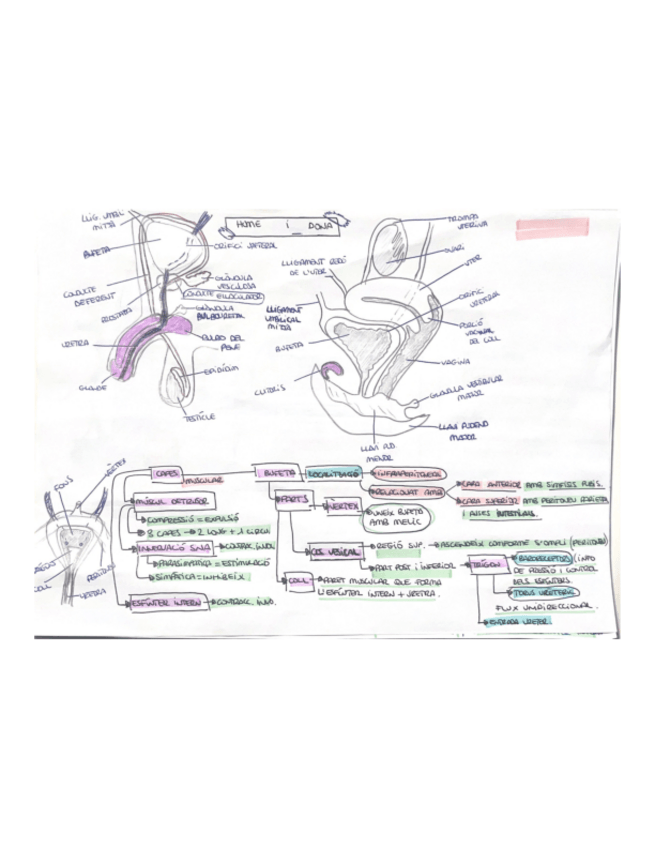 HOME i DONA
LLIG. UMBIL.
MITJÀ
BUFETA
CONDUCTE
DEFERENT
PRÒSTATA
URETRA
GLANDE
ORIFICI URETERAL
GLÀNDULA
VESICULOSA
CONDUCTE EJACULADOR
GLÀNDULA
BULBOURETRAL
BULB DEL
PENE
EPIDÍDIM
TESTICLE
TROMPA
UTERINA
OVARI
ÚTER
LLIGAMENT RODÓ
DE L'ÚTER
LLIGAMENT
UMBILICAL
MITJÀ
BUFETA
CLÍTORIS
ORIFICI
URETERAL
PORCIÓ
VAGINAL
DEL COLL
VAGINA
GLÀNDULA VESTIBULAR
MAJOR
LLAVI PUDEND
MAJOR
LLAVI PUD.
MENOR
FONS
VÈRTEX
COLL
URETRA
CAPES
MUSCULAR
MÚSCUL DETRUSOR
COMPRESSIÓ = EXPULSIÓ
3 CAPES → 2 LONG + 1 CIRCU
INNERVACIÓ SNA → CONTRAC. INVOL
PARASIMPÀTICA = ESTIMULACIÓ
SIMPÀTICA = INHIBEIX
ESFÍNTER INTERN → CONTRAC. INVO.
BUFETA
LOCALITZACIÓ
INFRAPERITONEAL
RELACIONAT AMB
CARA ANTERIOR AMB SÍMFISIS PUBIS.
CARA SUPERIOR AMB PERITONEU PARIETAL
I ANSES INTESTINALS.
PARTS
VÈRTEX
UNEIX BUFETA
AMB MELIC
COS VESICAL
REGIÓ SUP. → ASCENDEIX CONFORME S'OMPLI (PERITONEU)
PART POST. i INFERIOR
TRÍGON
BARORECEPTORS (INFO
DE PRESSIÓ I CONTROL
DELS ESFÍNTERS.
TORUS URETÈRIC
FLUX UNIDIRECCIONAL.
ENTRADA URÈTER.
COLL
PART MUSCULAR QUE FORMA
L'ESFÍNTER INTERN + URETRA.